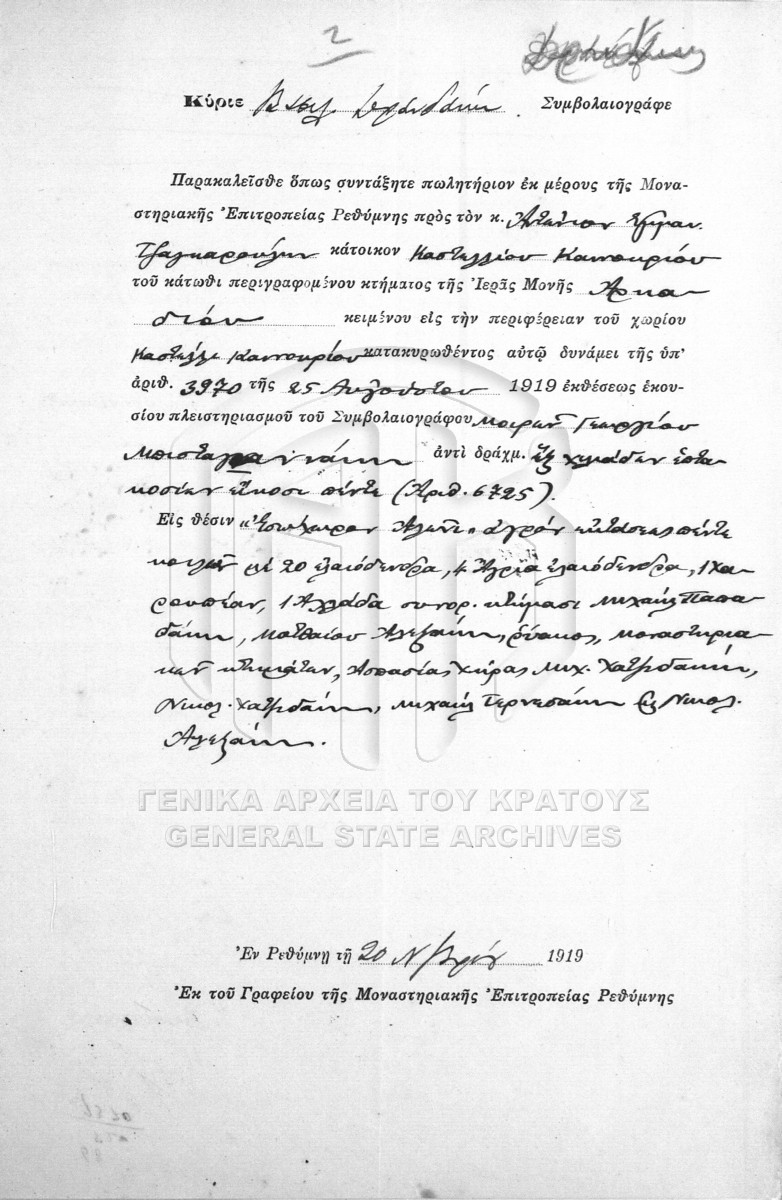 2
Κύριε Βασιλ. Συμβολαιογράφε
Παρακαλεῖσθε ὅπως συντάξητε πωλητήριον ἐκ μέρους τῆς Μονα-
στηριακῆς Ἐπιτροπείας Ρεθύμνης πρὸς τὸν κ. Ἀντώνιον Ἐμμαν.
Τζαγκαρουλην κάτοικον Καστελλίου Καινουρίου
τοῦ κάτωθι περιγραφομένου κτήματος τῆς Ἱερᾶς Μονῆς Ἀρκα
δίου κειμένου εἰς τὴν περιφέρειαν τοῦ χωρίου
Καστέλλι Καινουρίου κατακυρωθέντος αὐτῷ δυνάμει τῆς ὑπ'
ἀριθ. 3970 τῆς 25 Αὐγούστου 1919 ἐκθέσεως ἑκου-
σίου πλειστηριασμοῦ τοῦ Συμβολαιογράφου Μοιρῶν Γεωργίου
ἀντὶ δράχμ. ἓξ χιλιάδων ἑπτα
κοσίων εἴκοσι πέντε (Ἀριθ. 6725).
Εἰς θέσιν «Ἐσώχωρον Ἀλῶνι» ἀγρὸν ἐκτάσεως πέντε
μὲ 20 ἐλαιόδενδρα, 4 ἄγρια ἐλαιόδενδρα, 1 χα
ρουπέαν, 1 ἀχλάδα συνορ. κτήμασι Μιχαὴλ Παπα
δάκη, Ματθαίου Ἀλεξάκη, ρύακος, μοναστηρια
κῶν κτημάτων, Ἀσπασίας χήρας Μιχ. Χατζιδάκη,
Νικολ. Χατζιδάκη, Μιχαὴλ Περνεσάκη καὶ Νικολ.
Ἀλεξάκη.
ΓΕΝΙΚΑ ΑΡΧΕΙΑ ΤΟΥ ΚΡΑΤΟΥΣ
GENERAL STATE ARCHIVES
Ἐν Ρεθύμνῃ τῇ 20 Νβρίου 1919
Ἐκ τοῦ Γραφείου τῆς Μοναστηριακῆς Ἐπιτροπείας Ρεθύμνης